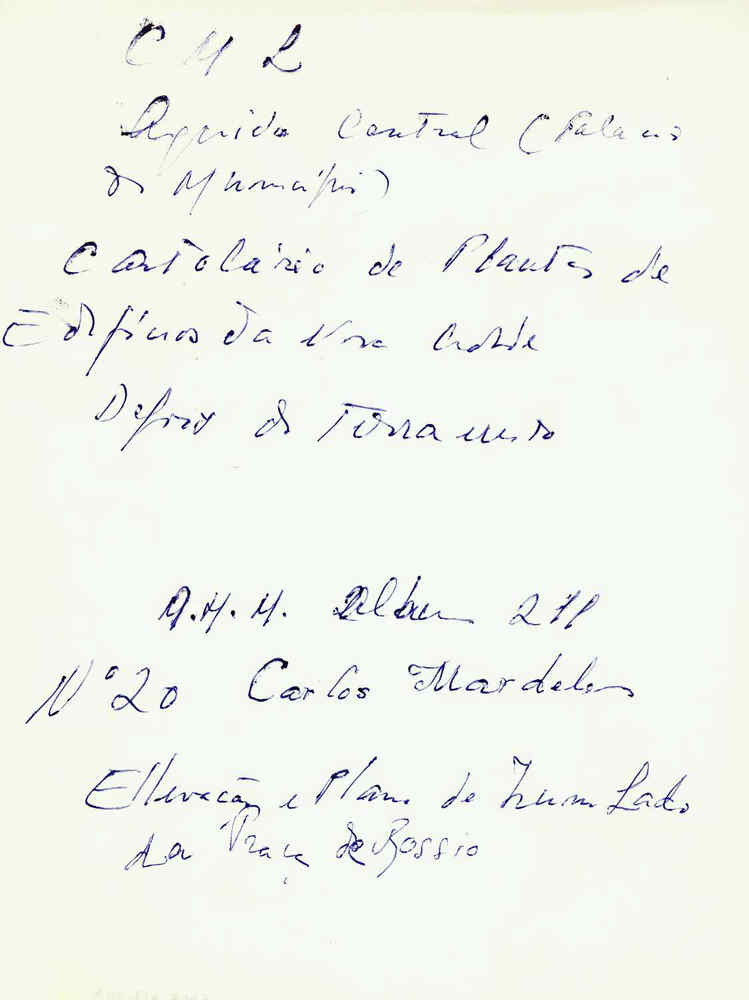 C M L
Arquivo Central (Palacio
do Municipio)
Cartolário de Plantas de
Edificios da Nova Cidade
Depois do Terramoto
A.H.M. Album 211
Nº 20 Carlos Mardel
Ellevacão e Plano de hum Lado
da Praça do Rossio